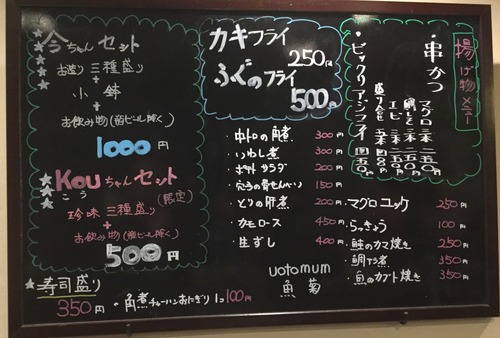 今ちゃんセット
お造り三種盛り
+
小鉢
+
お飲み物(缶ビール除く)
1000円
Kouちゃんセット
こう
(限定)
珍味三種盛り
+
お飲み物(缶ビール除く)
500円
寿司盛り
350円
・角煮チャーハンおにぎり 1コ100円
カキフライ
250円
ふぐのフライ
500円
・中トロの角煮 300円
・いわし煮 300円
・ポテトサラダ 200円
・穴子の骨せんべい 150円
・とりの肝煮 200円
・カモロース 450円
・生ずし 400円
uotomum
魚菊
揚げ物メニュー
・串かつ
マグロ 二本 二五〇
エビ
・ビックリアジフライ
・マグロユッケ 250円
・らっきょう 100円
・鮭のカマ焼き 250円
・鯛アラ煮 350円
・魚のカブト焼き 350円